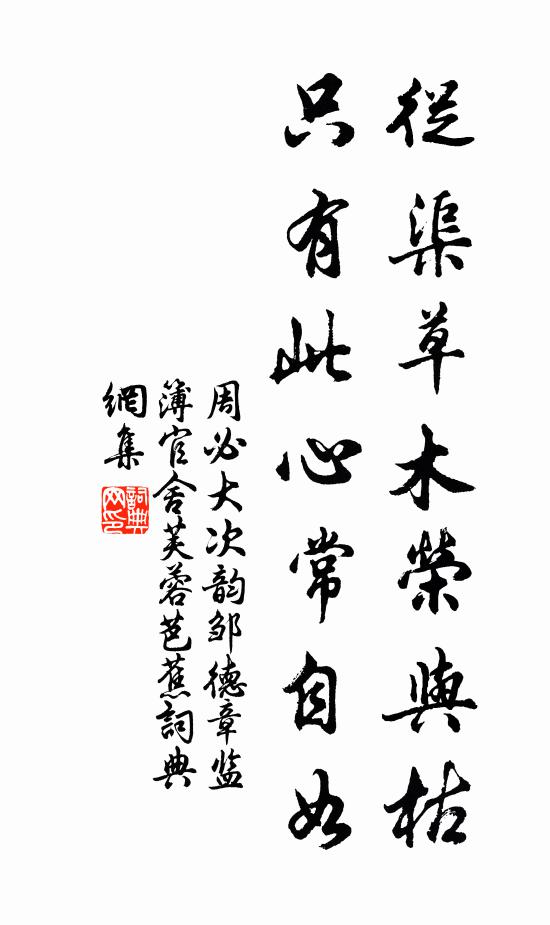 從渠草木榮與枯
只有此心常自如
周必大次韵邹德章监
簿官舍芙蓉芭蕉詞典
網集
詞典
网印